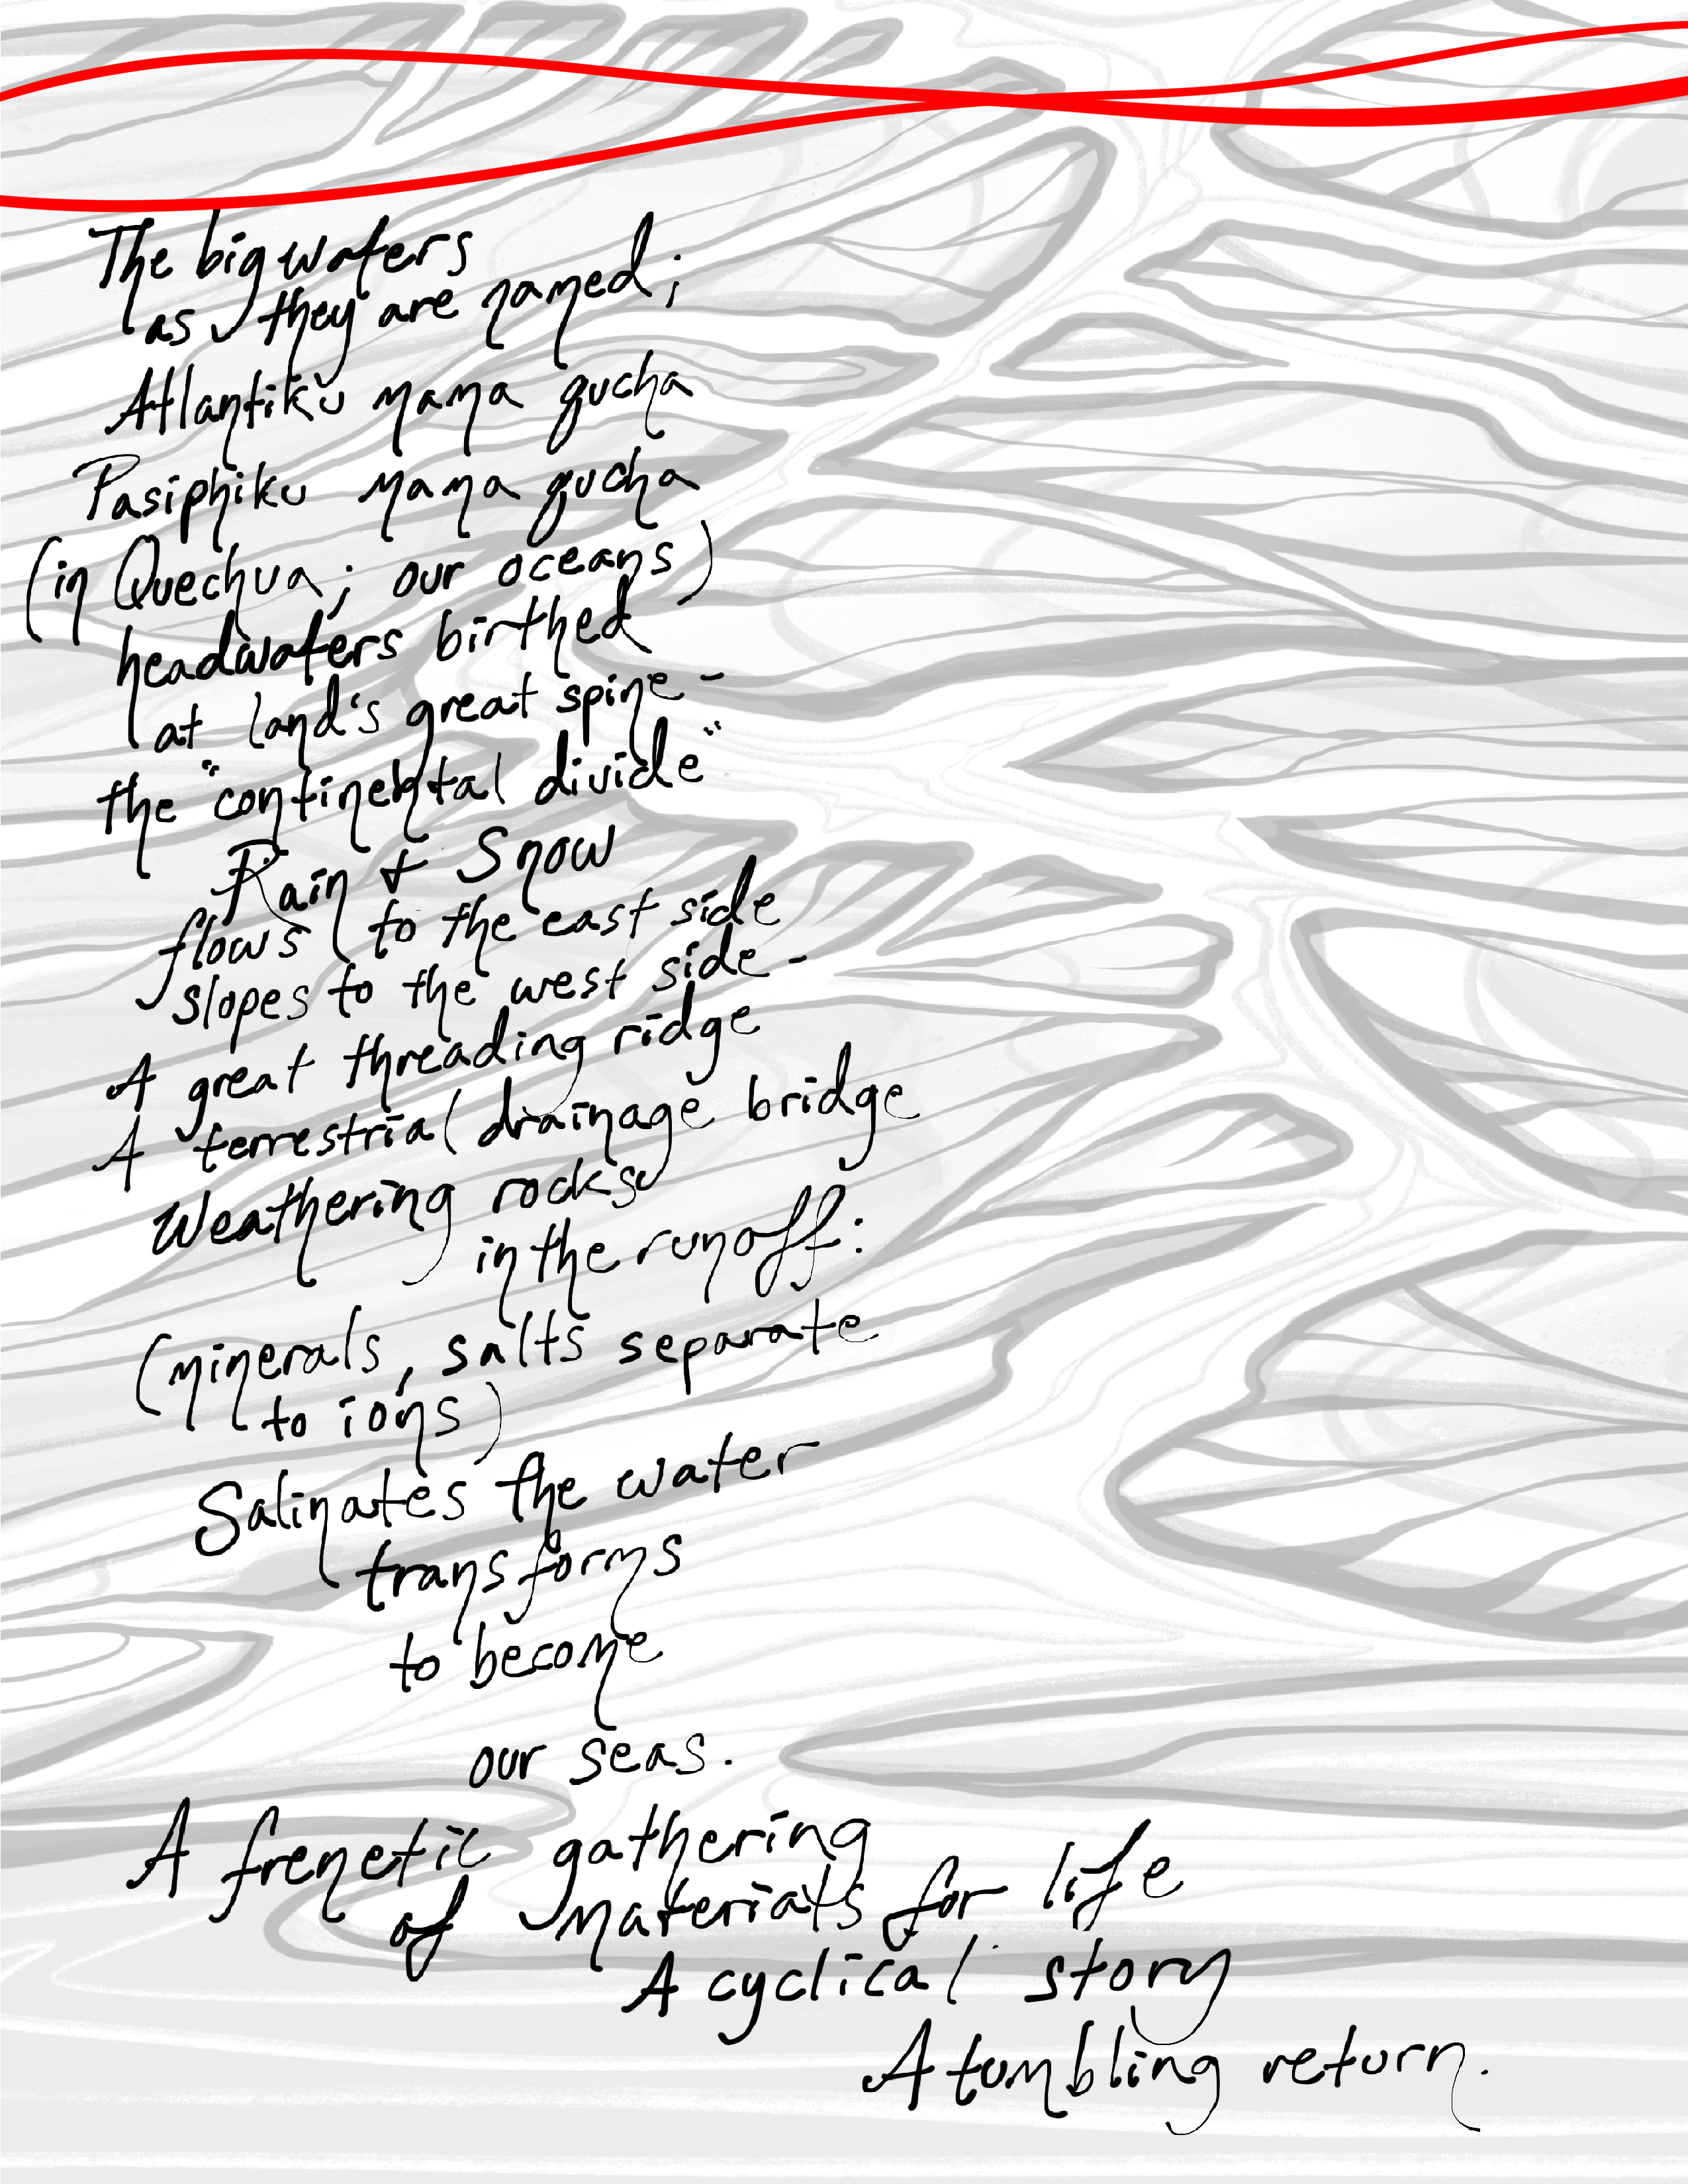 The big waters
as they are named;
Atlantiku mama qucha
Pasiphiku mama qucha
(in Quechua; our oceans)
headwaters birthed
at land's great spine -
the "continental divide"
Rain & Snow
flows to the east side
slopes to the west side -
A great threading ridge
A terrestrial drainage bridge
Weathering rocks
in the runoff:
(minerals, salts separate
to ions)
Salinates the water
transforms
to become
our seas.
A frenetic gathering
of materials for life
A cyclical story
A tumbling return.